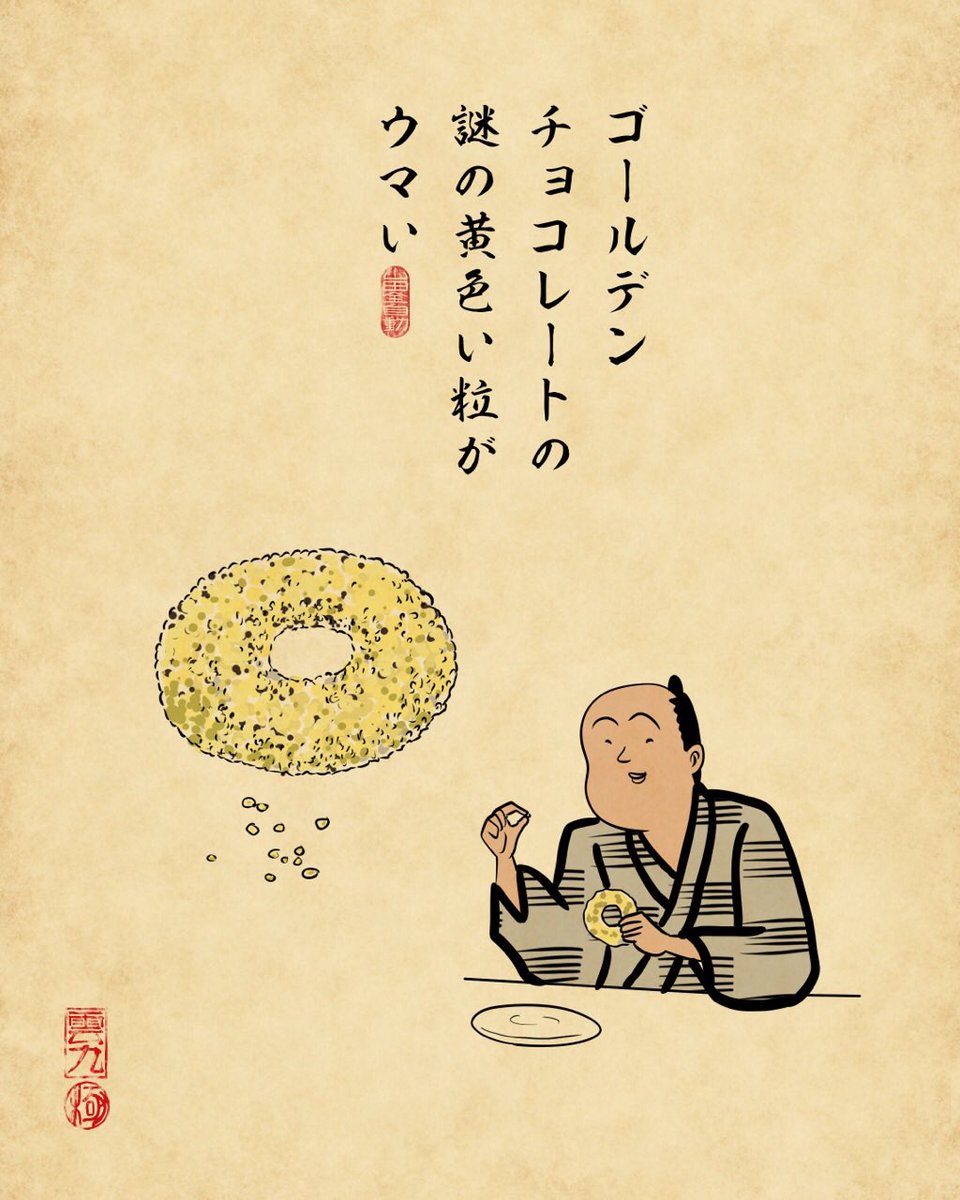 ゴールデン
チョコレートの
謎の黄色い粒が
ウマい